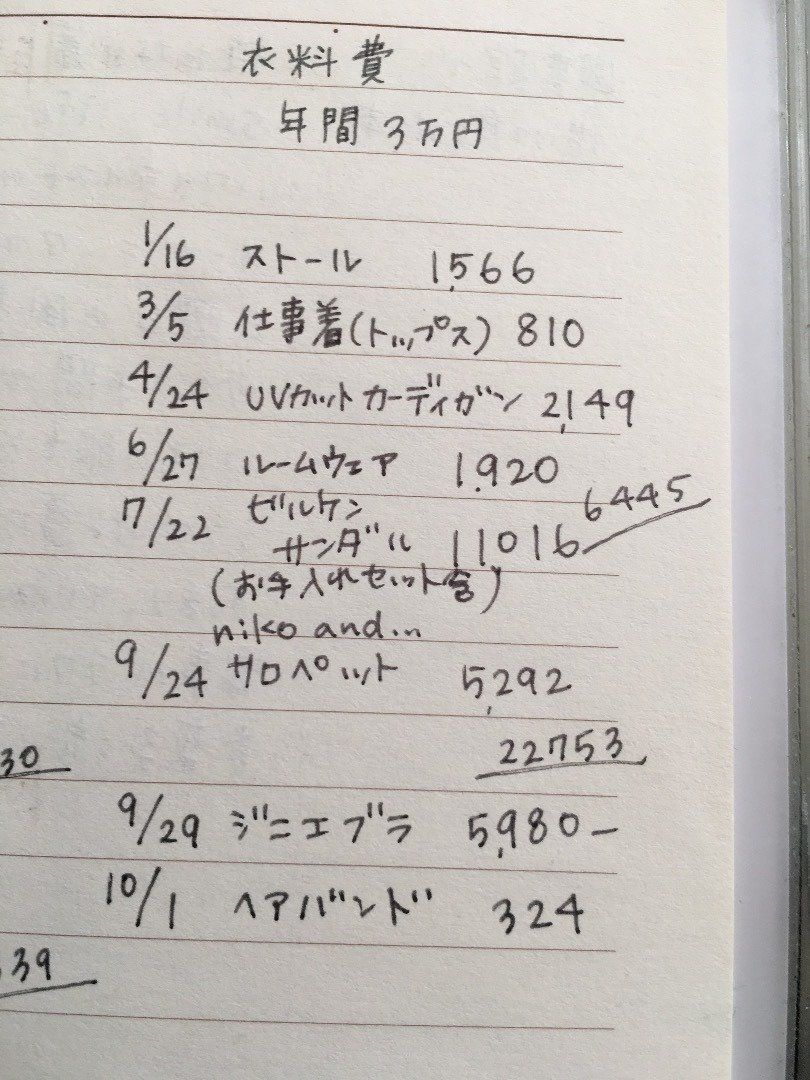 衣料費
年間 3万円
1/16 ストール 1,566
3/5 仕事着(トップス) 810
4/24 UVカットカーディガン 2,149
6/27 ルームウェア 1,920
6445
7/22 ビルケン
サンダル 11016
(お手入れセット含)
niko and...
9/24 サロペット 5,292
22753
30
9/29 ジニエブラ 5,980-
10/1 ヘアバンド 324
39